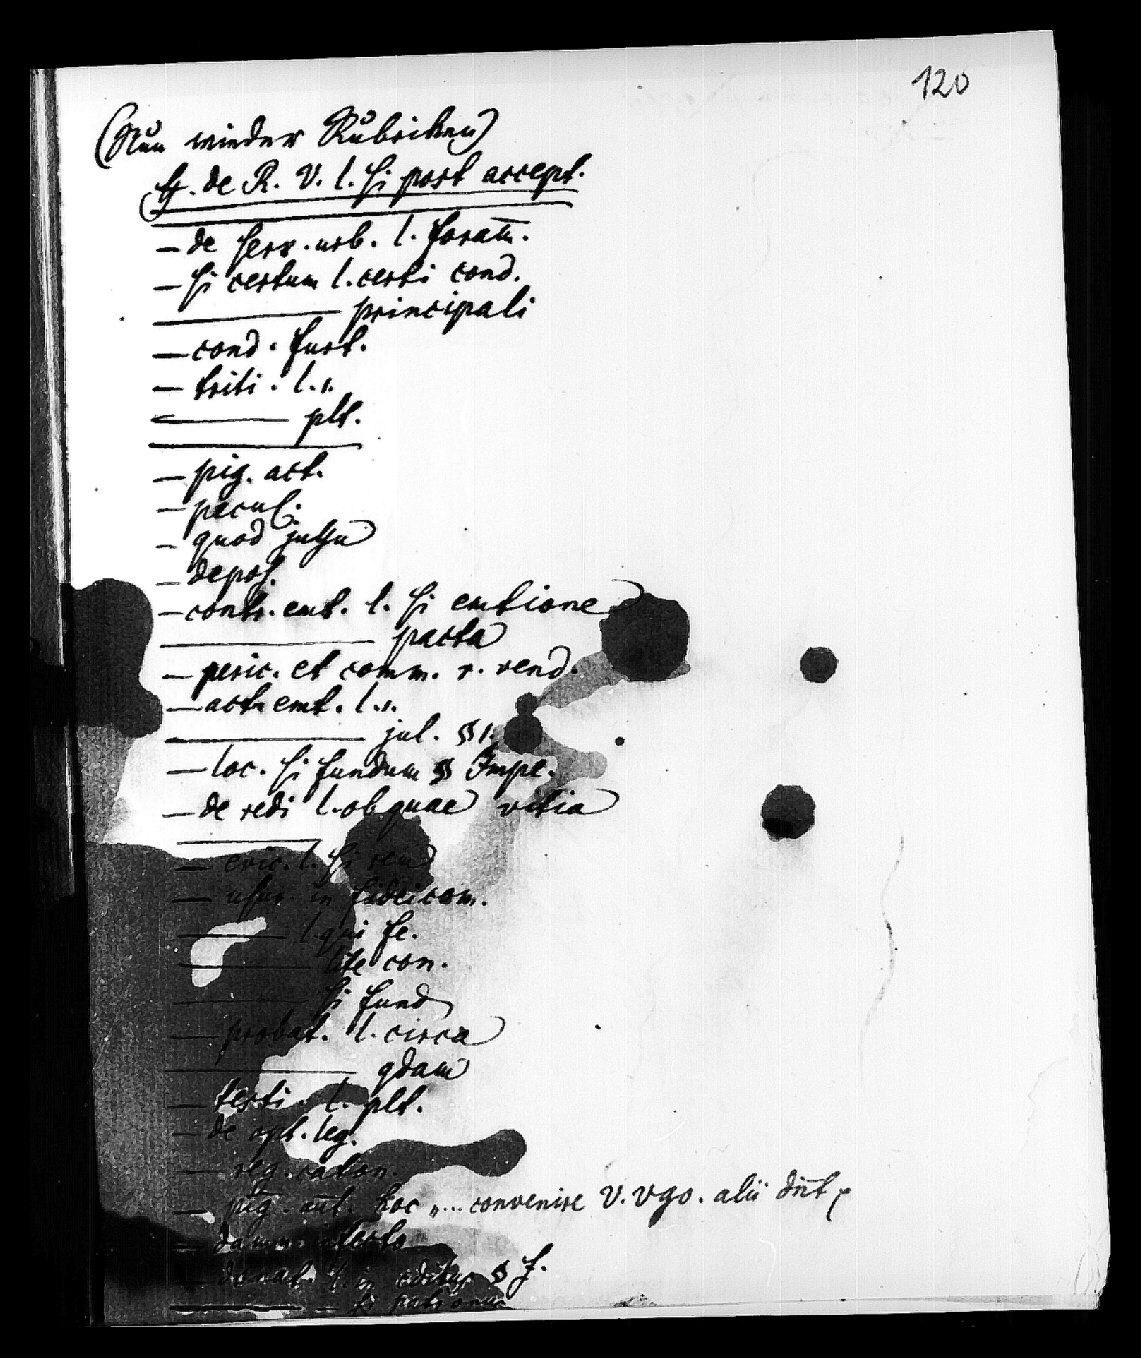 120
(Nun wieder Rubriken)
ff. de R. V. l. si post accept.
— de serv. urb. l. foram̅.
— si certum l. certi cond.
——— principali
— cond. furt.
— triti. l. 1.
——— plt.
— pig. act.
— pecul.
— quod jussu
— depos.
— contr. emt. l. si emtione
——— pacta
— peric. et comm. r. vend.
— act. emt. l. 1.
——— jul. § 1.
— loc. si fundum § Impe.
— de redi l. ob quae vitia
— evic. l. si rem
— usur. in fideicom.
——— l. qui fe.
——— lite con.
——— si fund
— probat. l. circa
——— qdam
— testi. l. plt.
— de opt. leg.
— reg. caton.
— pig. act. hoc „... convenire V. Vgo. alii dn̅t
— damn. infecto
— donat. l. in edibus § f.
——— si patronus